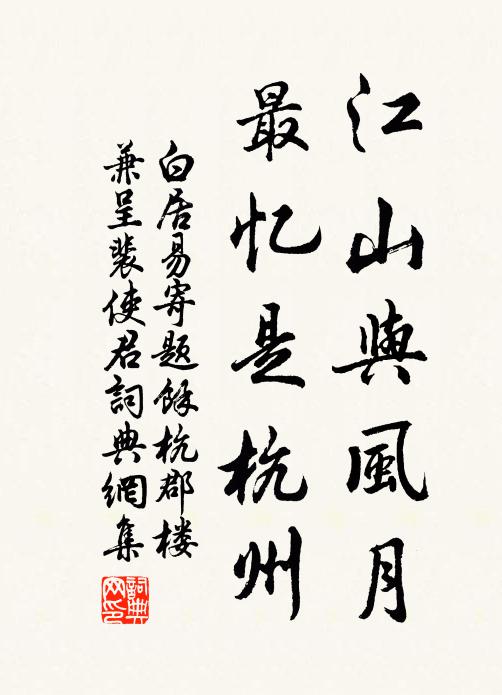 江山與風月
最忆是杭州
白居易寄題餘杭郡楼
兼呈裴使君詞典網集
詞典
网印